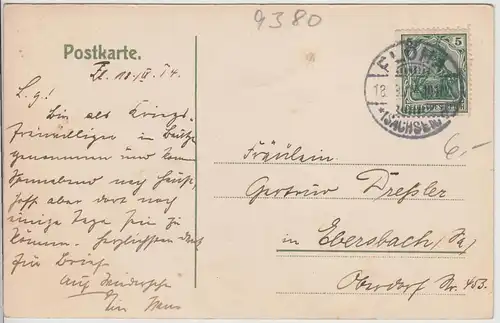 9380
Postkarte.
5
FLÖHA
(SACHSEN)
Fl. 18. II. 14.
L. G.!
Bin als Kriegs-
freiwilliger in Bautzen
genommen und kam
Sonnabend nach Hause,
hoffe aber dort noch
einige Tage sein zu
können. Herzlichsten Dank
für Brief.
Auf Wiedersehn
Dein Hans
6,-
Fräulein
Gertrud Dreßler
in Ebersbach (Sa)
Oberdorf Nr. 453.